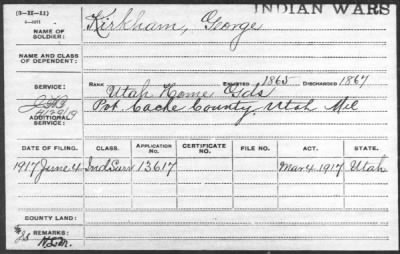 INDIAN WARS
(3-II-11)
NAME OF SOLDIER: Kirkham, George
NAME AND CLASS OF DEPENDENT:
SERVICE: RANK Utah Home Gds ENLISTED 1865 DISCHARGED 1867
Pvt. Cache County, Utah Mil
ADDITIONAL SERVICE:
DATE OF FILING. CLASS. APPLICATION NO. CERTIFICATE NO. FILE NO. ACT. STATE.
1917 June 4 Ind Surv 13617 Mar 4, 1917 Utah
COUNTY LAND:
REMARKS: